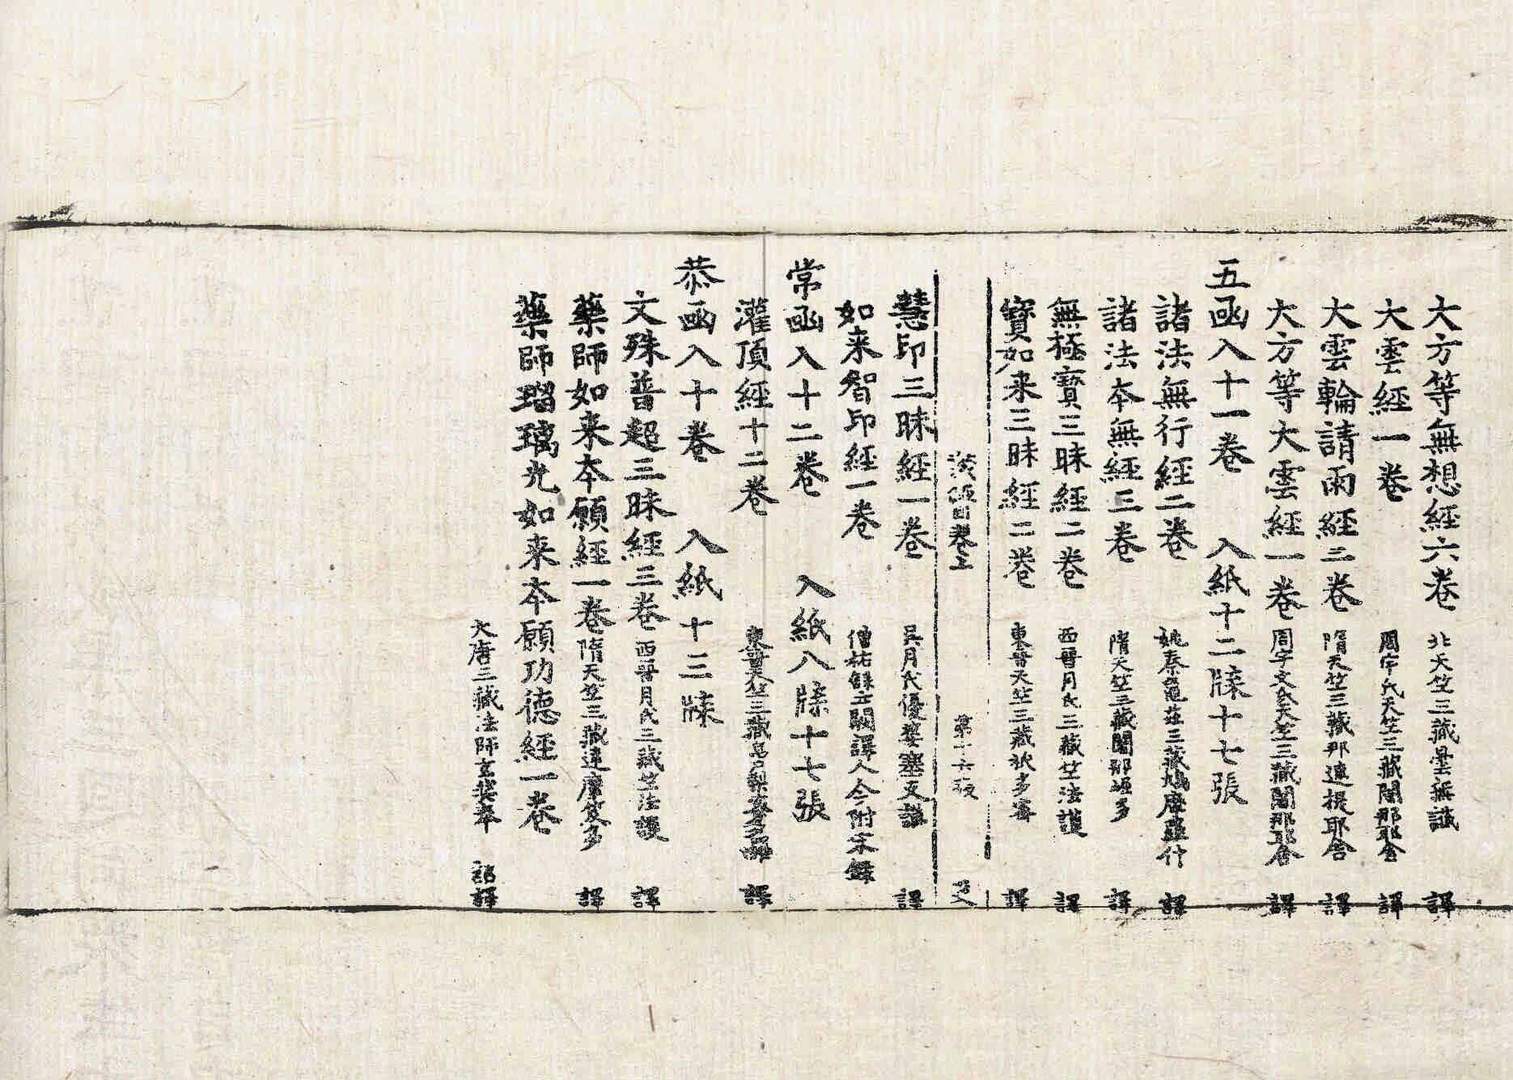 大方等無想經六卷 北天竺三藏曇無讖 譯
大雲經一卷 周宇氏天竺三藏闍那耶舍 譯
大雲輪請雨經二卷 隋天竺三藏那連提耶舍 譯
大方等大雲經一卷 周宇文氏天竺三藏闍那耶舍 譯
五函入十一卷 入紙十二牒十七張
諸法無行經二卷 姚秦龜茲三藏鳩摩羅什 譯
諸法本無經三卷 隋天竺三藏闍那崛多 譯
無極寶三昧經二卷 西晉月氏三藏竺法護 譯
寶如来三昧經二卷 東晉天竺三藏祇多蜜 譯
藏經目卷上 第十六張
慧印三昧經一卷 吳月氏優婆塞支謙 譯
如来智印經一卷 僧祐録云闕譯人今附宋録
常函入十二卷 入紙八牒十七張
灌頂經十二卷 東晉天竺三藏帛尸梨蜜多羅 譯
恭函入十卷 入紙十三牒
文殊普超三昧經三卷 西晉月氏三藏竺法護 譯
藥師如来本願經一卷 隋天竺三藏達摩笈多 譯
藥師瑠璃光如来本願功德經一卷
大唐三藏法師玄奘奉 詔譯